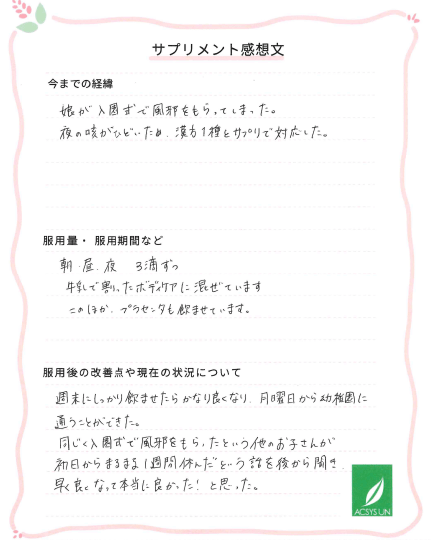 サプリメント感想文
今までの経緯
娘が入園すずで風邪をもらってしまった。
夜の咳がひどいため、漢方1種とサプリで対応した。
服用量・服用期間など
朝・昼・夜 3滴ずつ
牛乳で割ったボディケアに混ぜています
このほか、プラセンタも飲ませています。
服用後の改善点や現在の状況について
週末にしっかり飲ませたらかなり良くなり、月曜日から幼稚園に
通うことができた。
同じく入園すずで風邪をもらったという他のお子さんが
初日からまるまる1週間休んだという話を後から聞き、
早く良くなって本当に良かった！と思った。
ACSYS UN